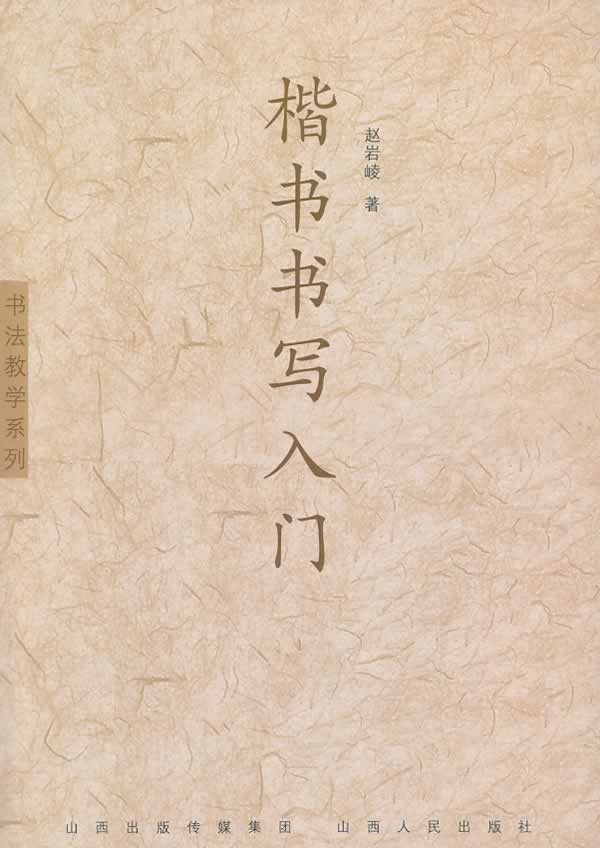 楷书书写入门
赵岩崚 著
书法教学系列
山西出版传媒集团 山西人民出版社